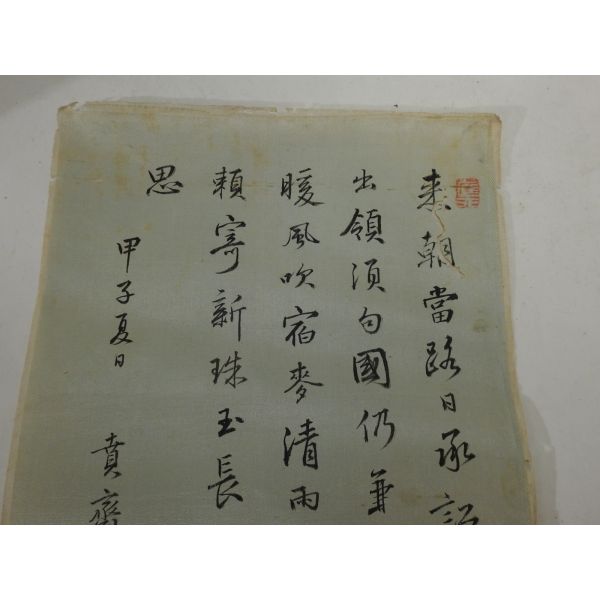 来朝當路日承
出領須句國仍兼
暖風吹宿麥清雨
頼寄新珠玉長
思
甲子夏日 賁齋